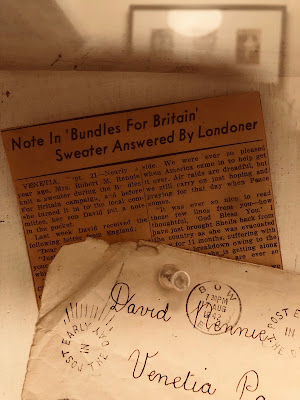 Note In 'Bundles For Britain'
Sweater Answered By Londoner
VENETIA, 21—Nearly a
year ago, Mrs. Robert M. Rennie
knit a sweater during the
For Britain campaign, and before
she turned it in to the local com-
mittee, her son David put a note
in the pocket.
Last week David received the
following letter England:
"Dear
side. We were ever so pleased
when America came in to help get
it over. Air raids are dreadful, but
still carry on just hoping and
praying for that day when Peace
It was ever so nice to read
those few lines from you—how
thoughtful, 'God Bless You.' I
have just brought Sheila back from
the country as she was evacuated
for 11 months, suffering with
breakdown owing to the
she is getting along
ever so
BOW
30PM
7 AUG
1942
E.
POST E
IN
THE
David Rennie
POST EARLY AND
IN
THE
Venetia Pa